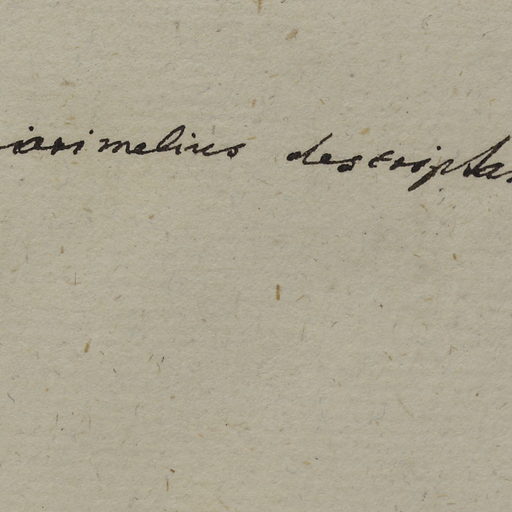 iari melius descripta